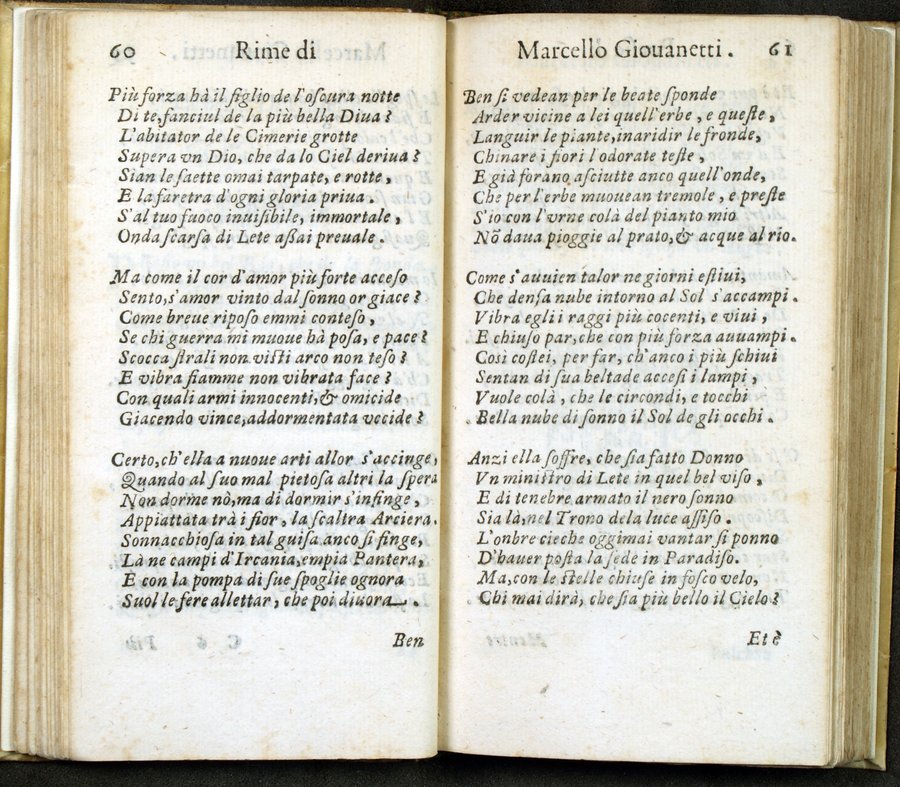 60 Rime di
Più forza hà il figlio de l'oſcura notte
Di te, fanciul de la più bella Diua?
L'abitator de le Cimerie grotte
Supera vn Dio, che da lo Ciel deriua?
Sian le ſaette omai tarpate, e rotte,
E la faretra d'ogni gloria priua.
S'al tuo fuoco inuiſibile, immortale,
Onda ſcarſa di Lete aſſai preuale.
Ma come il cor d'amor più forte acceſo
Sento, s'amor vinto dal ſonno or giace?
Come breue ripoſo emmi conteſo,
Se chi guerra mi muoue hà poſa, e pace?
Scocca ſtrali non viſti arco non teſo?
E vibra fiamme non vibrata face?
Con quali armi innocenti, & omicide
Giacendo vince, addormentata vccide?
Certo, ch'ella a nuoue arti allor s'accinge,
Quando al ſuo mal pietoſa altri la ſpera
Non dorme nò, ma di dormir s'infinge,
Appiattata trà i fior, la ſcaltra Arciera.
Sonnacchioſa in tal guiſa anco ſi finge,
Là ne campi d'Ircania, empia Pantera,
E con la pompa di ſue ſpoglie ognora
Suol le fere allettar, che poi diuora.
Ben
Marcello Giouanetti. 61
Ben ſi vedean per le beate ſponde
Arder vicine a lei quell'erbe, e queſte,
Languir le piante, inaridir le fronde,
Chinare i fiori l'odorate teſte,
E già forano aſciutte anco quell'onde,
Che per l'erbe muouean tremole, e preſte
S'io con l'vrne colà del pianto mio
Nõ daua pioggie al prato, & acque al rio.
Come s'auuien talor ne giorni eſtiui,
Che denſa nube intorno al Sol s'accampi.
Vibra egli i raggi più cocenti, e viui,
E chiuſo par, che con più forza auuampi.
Cosi coſtei, per far, ch'anco i più ſchiui
Sentan di ſua beltade acceſi i lampi,
Vuole colà, che le circondi, e tocchi
Bella nube di ſonno il Sol de gli occhi.
Anzi ella ſoffre, che ſia fatto Donno
Vn miniſtro di Lete in quel bel viſo,
E di tenebre armato il nero ſonno
Sia là, nel Trono de la luce aſſiſo.
L'ombre cieche oggimai vantar ſi ponno
D'hauer poſta la ſede in Paradiſo.
Ma, con le ſtelle chiuſe in foſco velo,
Chi mai dirà, che ſia più bello il Cielo?
Et è